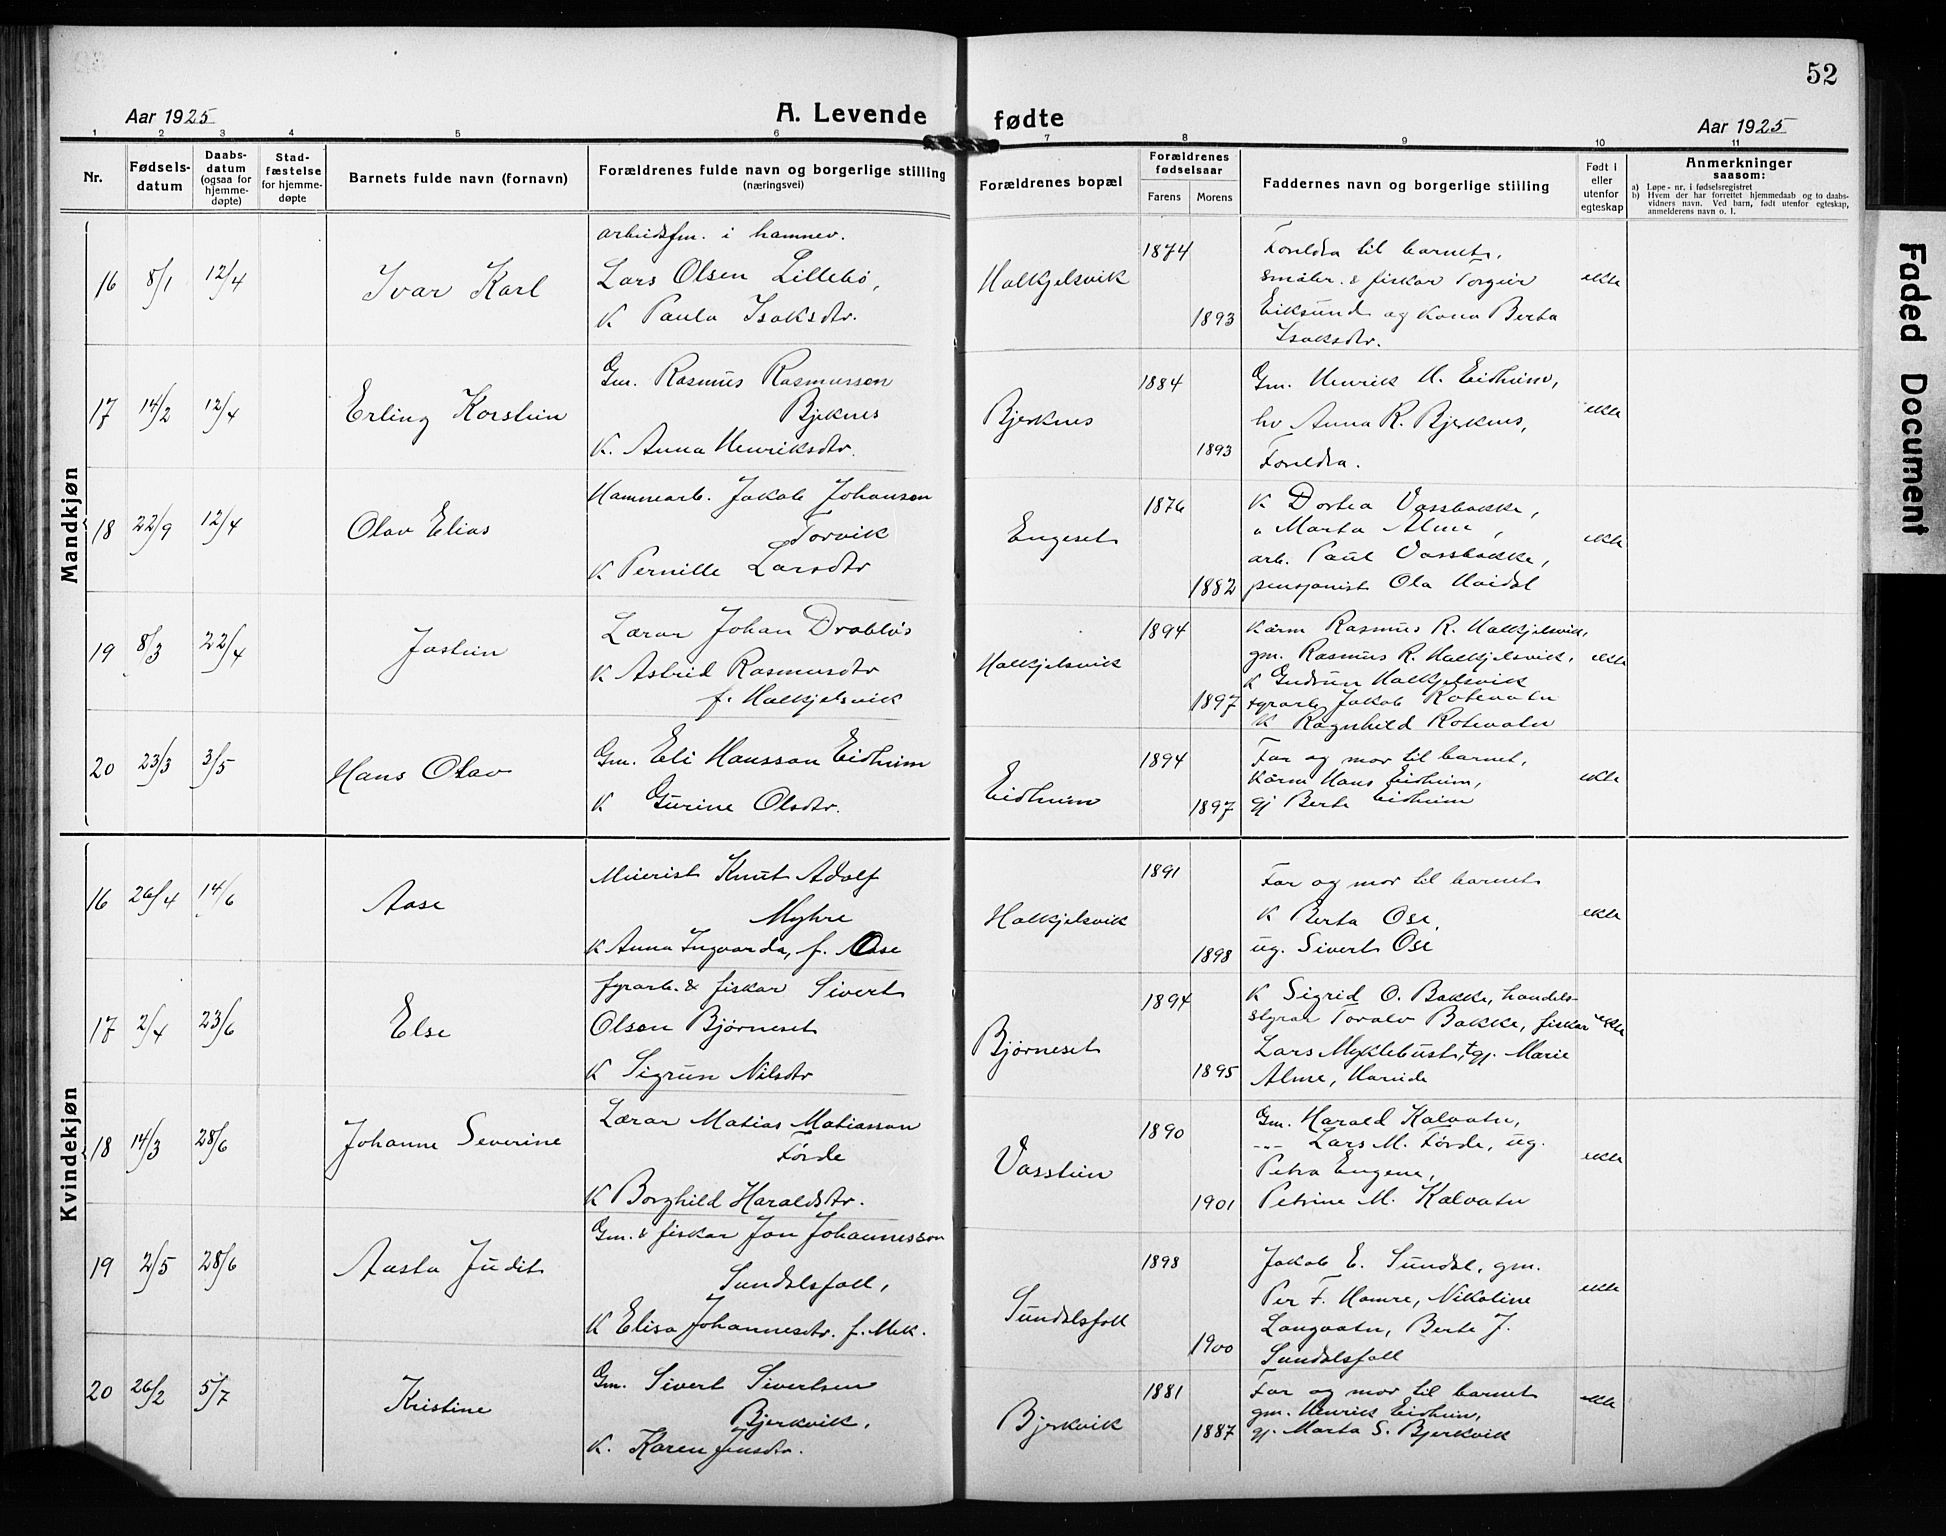 52
Aar 1925
A. Levende fødte
Aar 1925
1 2 3 4 5 6 7 8 9 10 11
Nr.
Fødsels-
datum
Daabs-
datum
(ogsaa for
hjemme-
døpte)
Stad-
fæstelse
for hjemme-
døpte
Barnets fulde navn (fornavn)
Forældrenes fulde navn og borgerlige stilling
(næringsvei)
Forældrenes bopæl
Forældrenes
fødselsaar
Farens Morens
Faddernes navn og borgerlige stilling
Født i
eller
utenfor
egteskap
Anmerkninger
saasom:
a) Løpe-nr. i fødselsregistret
b) Hvem der har forrettet hjemmedaab og to daabs-
vidners navn. Ved barn, født utenfor egteskap,
anmelderens navn o. l.
Mandkjøn
16 8/1 12/4 Ivar Karl
arbeidsfm. i hamnev.
Lars Olsen Lillebø,
K Paula Isaksdtr.
Halkjelsvik
1874
1893
Foreldra til barnet,
småbr. & fiskar Torgeir
Eiksund og kona Berta
Isaksdtr.
ekte
17 14/2 12/4 Erling Korstein
Gm. Rasmus Rasmusson
Bjeknes
K. Anna Henriksdtr.
Bjerknes
1884
1893
Gm. Henrik H. Eidheim,
hv Anna R. Bjerknes,
Foreldra.
ekte
18 22/9 12/4 Olav Elias
Hamnearb. Jakob Johanson
Torvik
K Pernille Larsdtr
Engeset
1876
1882
K Dortea Vassbakke,
" Marta Alme,
arb. Paul Vassbakke,
pensjonist Ola Haidal
ekte
19 8/3 22/4 Jostein
Lærar Johan Drabløs
K Astrid Rasmusdtr
f. Halkjelsvik
Halkjelsvik
1894
1897
Kårm Rasmus R. Halkjelsvik,
gm. Rasmus R. Halkjelsvik,
K Gudrun Halkjelsvik
fyrarb Jakob Rotevatn
K Ragnhild Rotevatn
ekte
20 23/3 3/5 Hans Olav
Gm. Eli Hansson Eidheim
K Gurine Olsdtr.
Eidheim
1894
1897
Far og mor til barnet,
Kårm Hans Eidheim,
gj Berte Eidheim
ekte
Kvindekjøn
16 26/4 14/6 Aase
Meierist Knut Adolf
Myhre
K Anna Ingvarda, f. Ose
Halkjelsvik
1891
1898
Far og mor til barnet
K Berta Ose,
ug. Sivert Ose
ekte
17 2/4 23/6 Else
fyrarb. & fiskar Sivert
Olson Bjørneset
K Sigrun Nilsdtr
Bjørneset
1894
1895
K Sigrid O. Bakke, handels-
styrar Toralv Bakke, fiskar
Lars Myklebust, gj. Marie
Alme, Hareide
ekte
18 14/3 28/6 Johanne Severine
Lærar Matias Matiasson
Førde
K Borghild Haraldsdtr.
Vasstein
1890
1901
Gm. Harald Kalvatn,
-"- Lars M. Førde, ug.
Petra Engene,
Petrine M. Kalvatn
ekte
19 2/5 28/6 Aasta Judit
Gm. & fiskar Jon Johannesson
Sundalsfoll,
K Elisa Johannesdtr. f. Mek.
Sundalsfoll
1898
1900
Jakob E. Sundal, gm.
Per F. Hamre, Nikoline
Langvatn, Berte J.
Sundalsfoll
ekte
20 26/2 5/7 Kristine
Gm. Sivert Sivertsen
Bjerkvik,
K. Karen Jensdtr.
Bjerkvik
1881
1887
Far og mor til barnet
gm. Henrik Eidheim,
gj. Marta S. Bjerkvik
ekte
Faded Document